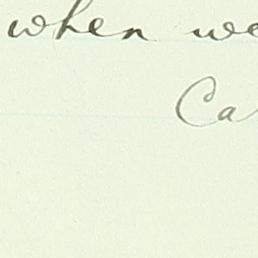 when we
Ca